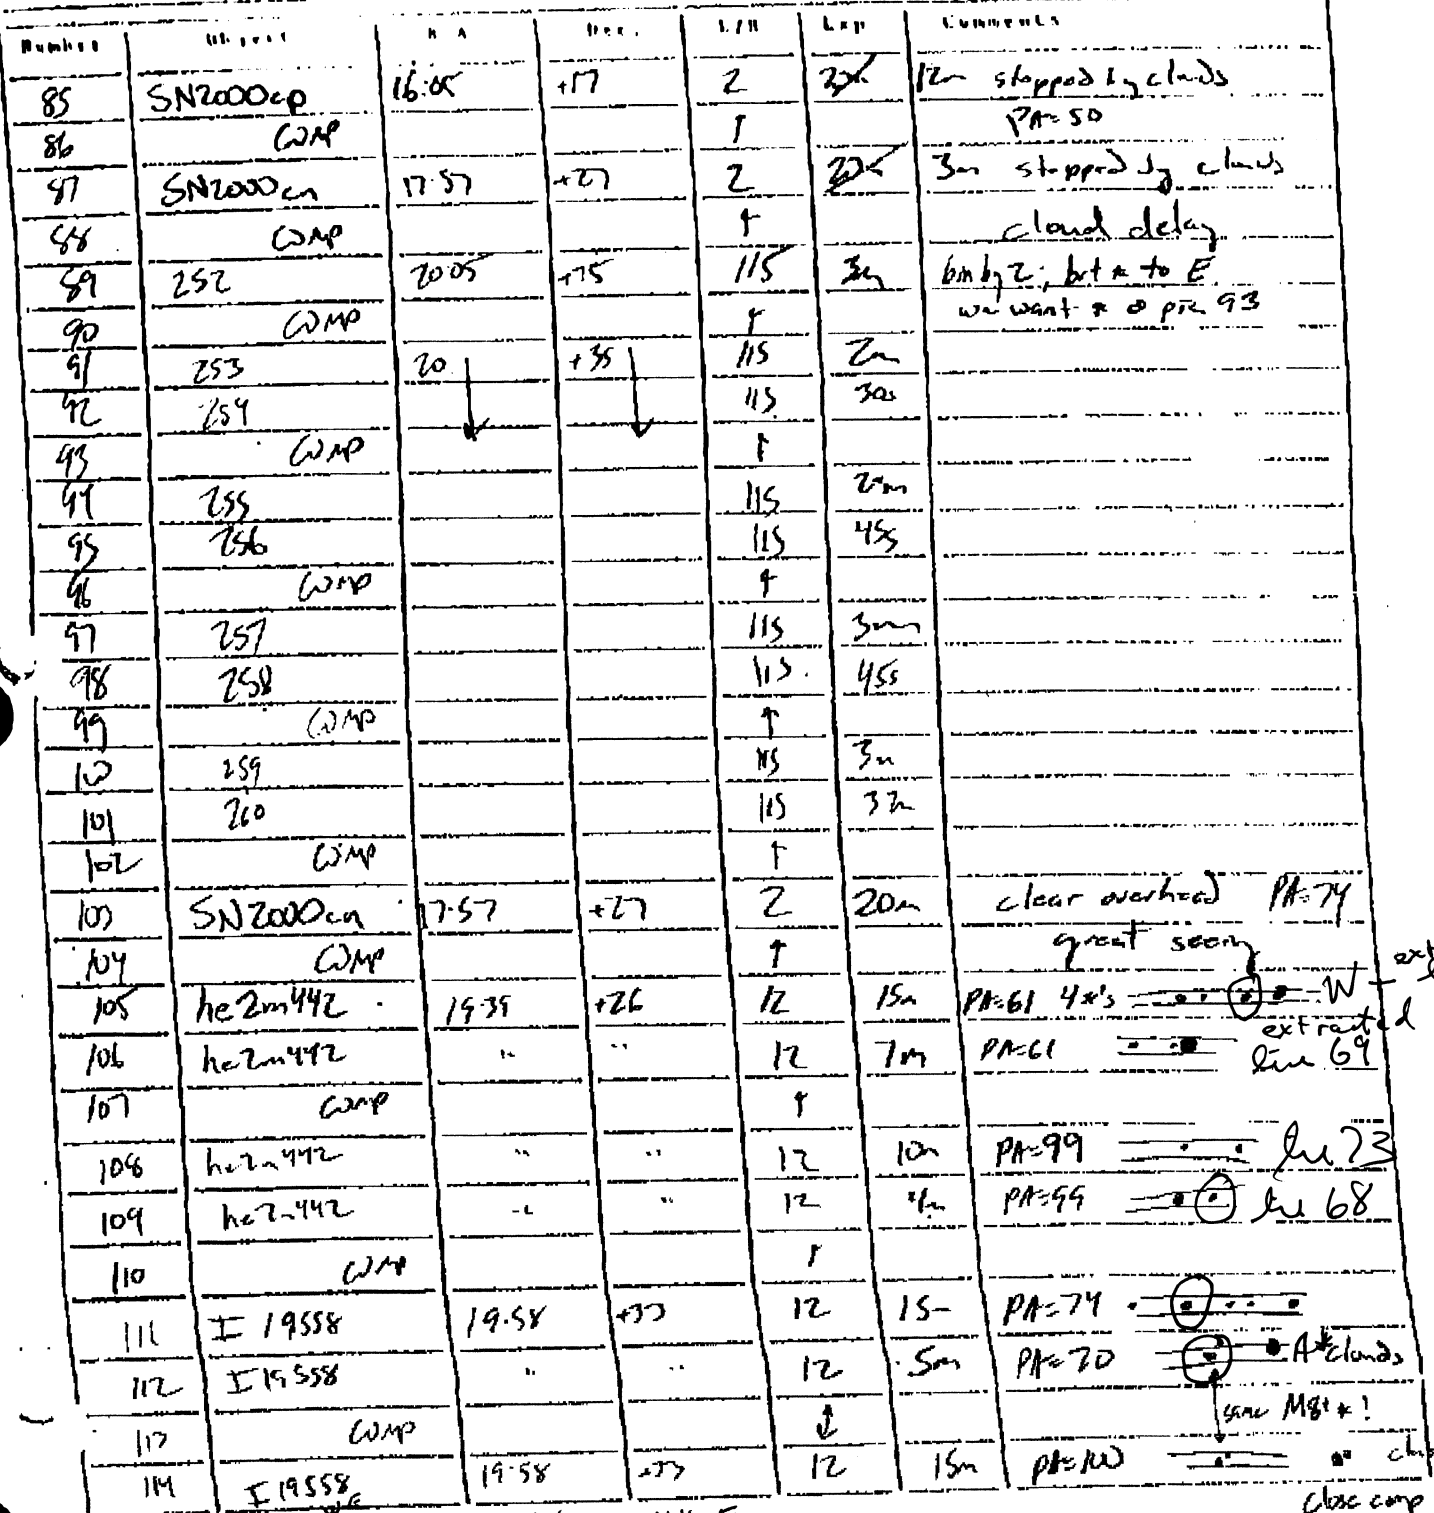 Number Object R A Dec. L/R Exp Comments
85 SN2000cp 16:05 +17 2 12m stopped by clouds
86 COMP ↑ PA=50
87 SN2000cn 17:57 +27 2 3m stopped by clouds
88 COMP ↑ cloud delay
89 252 20:05 +35 115 3m bin by 2; brt * to E
90 COMP ↑ we want * @ pix 93
91 253 20 +35 115 2m
92 254 115 30s
93 COMP ↑
94 255 115 2m
95 256 115 45s
96 COMP ↑
97 257 115 3m
98 258 115 45s
99 COMP ↑
100 259 115 3m
101 260 115
102 COMP ↑
103 SN2000cn 17:57 +27 2 20m clear overhead PA=74
104 COMP ↑ great seeing
105 he2m442 19:39 +26 12 15m PA=61 4*'s W
extracted
106 he2m442 " " 12 7m PA=61 line 69
107 COMP ↑
108 he2m442 " " 12 10m PA=99 line 73
109 he2m442 " " 12 PA=99 line 68
110 COMP ↑
111 I 19558 19:58 +33 12 15m PA=74
112 I 19558 " " 12 5m PA=70 A* clouds
113 COMP ↕ same M8+ *!
114 I 19558 19:58 +33 12 15m PA=100
close comp